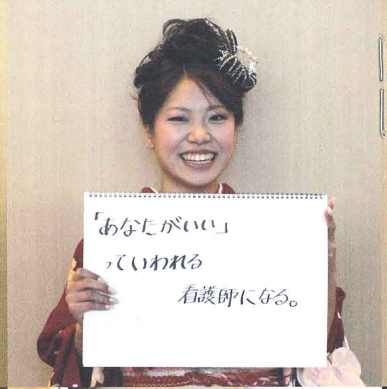 「あなたがいい」
っていわれる
看護師になる。